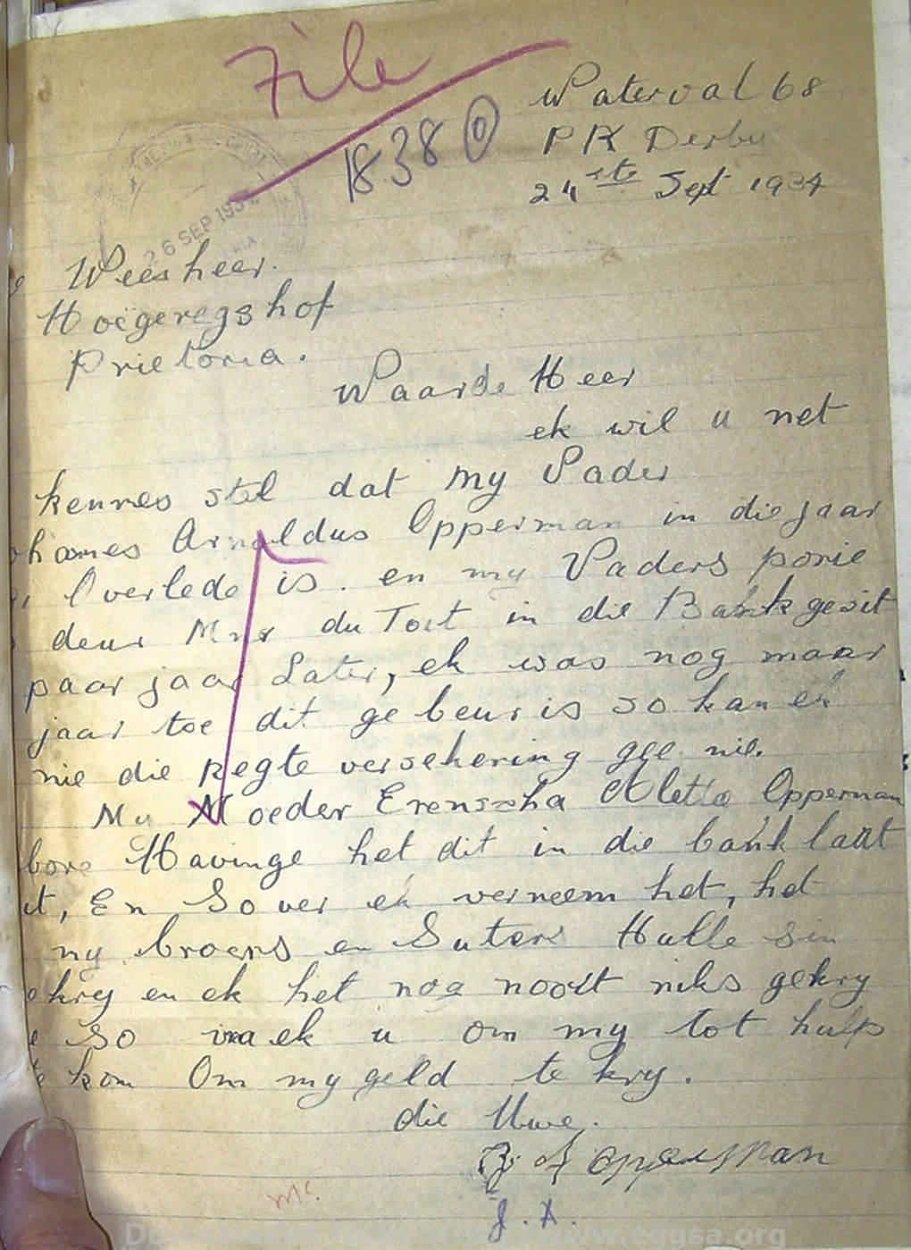 File
1838
Waterval 68
P K Derby
24ste Sept 1934
26 SEP 193
Weesheer.
Hoëgeregshof
Prietoria.
Waarde Heer
ek wil u net
kennes stel dat my Vader
hames Arnoldus Opperman in die jaar
Overlede is. en my Vaders porsie
deur Mnr du Toit in die Bank gesit
paar jaar Later, ek was nog maar
jaar toe dit gebeur is so kan ek
nie die Regte versekering gee nie.
My Moeder Erenssha Aletta Opperman
bore Havinge het dit in die bank laat
it, En So ver ek verneem het, het
my broers en Susters Hulle sin
ekry en ek het nog nooit niks gekry
so vra ek u om my tot hulp
te kom Om my geld te kry.
die Uwe.
Opperman
J. A.
www.eggsa.org